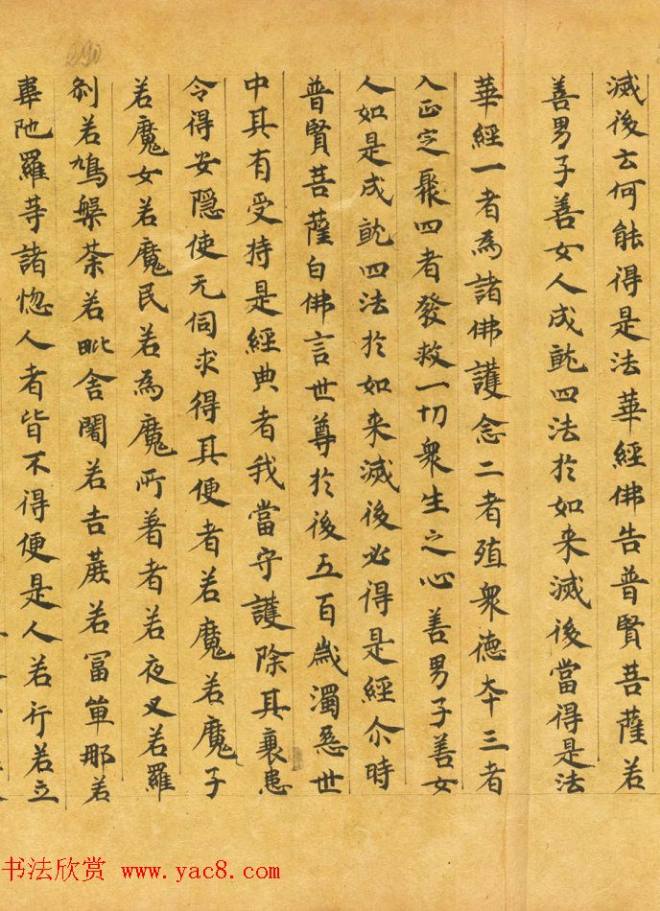 滅後云何能得是法華經佛告普賢菩薩若
善男子善女人成就四法於如来滅後當得是法
華經一者為諸佛護念二者殖衆德夲三者
入正定聚四者發救一切衆生之心善男子善女
人如是成就四法於如来滅後必得是經尒時
普賢菩薩白佛言世尊於後五百歲濁惡世
中其有受持是經典者我當守護除其衰患
令得安隱使无伺求得其便者若魔若魔子
若魔女若魔民若為魔所著者若夜叉若羅
剎若鳩槃荼若毗舍闍若吉蔗若冨單那若
韋陁羅等諸惱人者皆不得便是人若行若立
书法欣赏 www.yac8.com